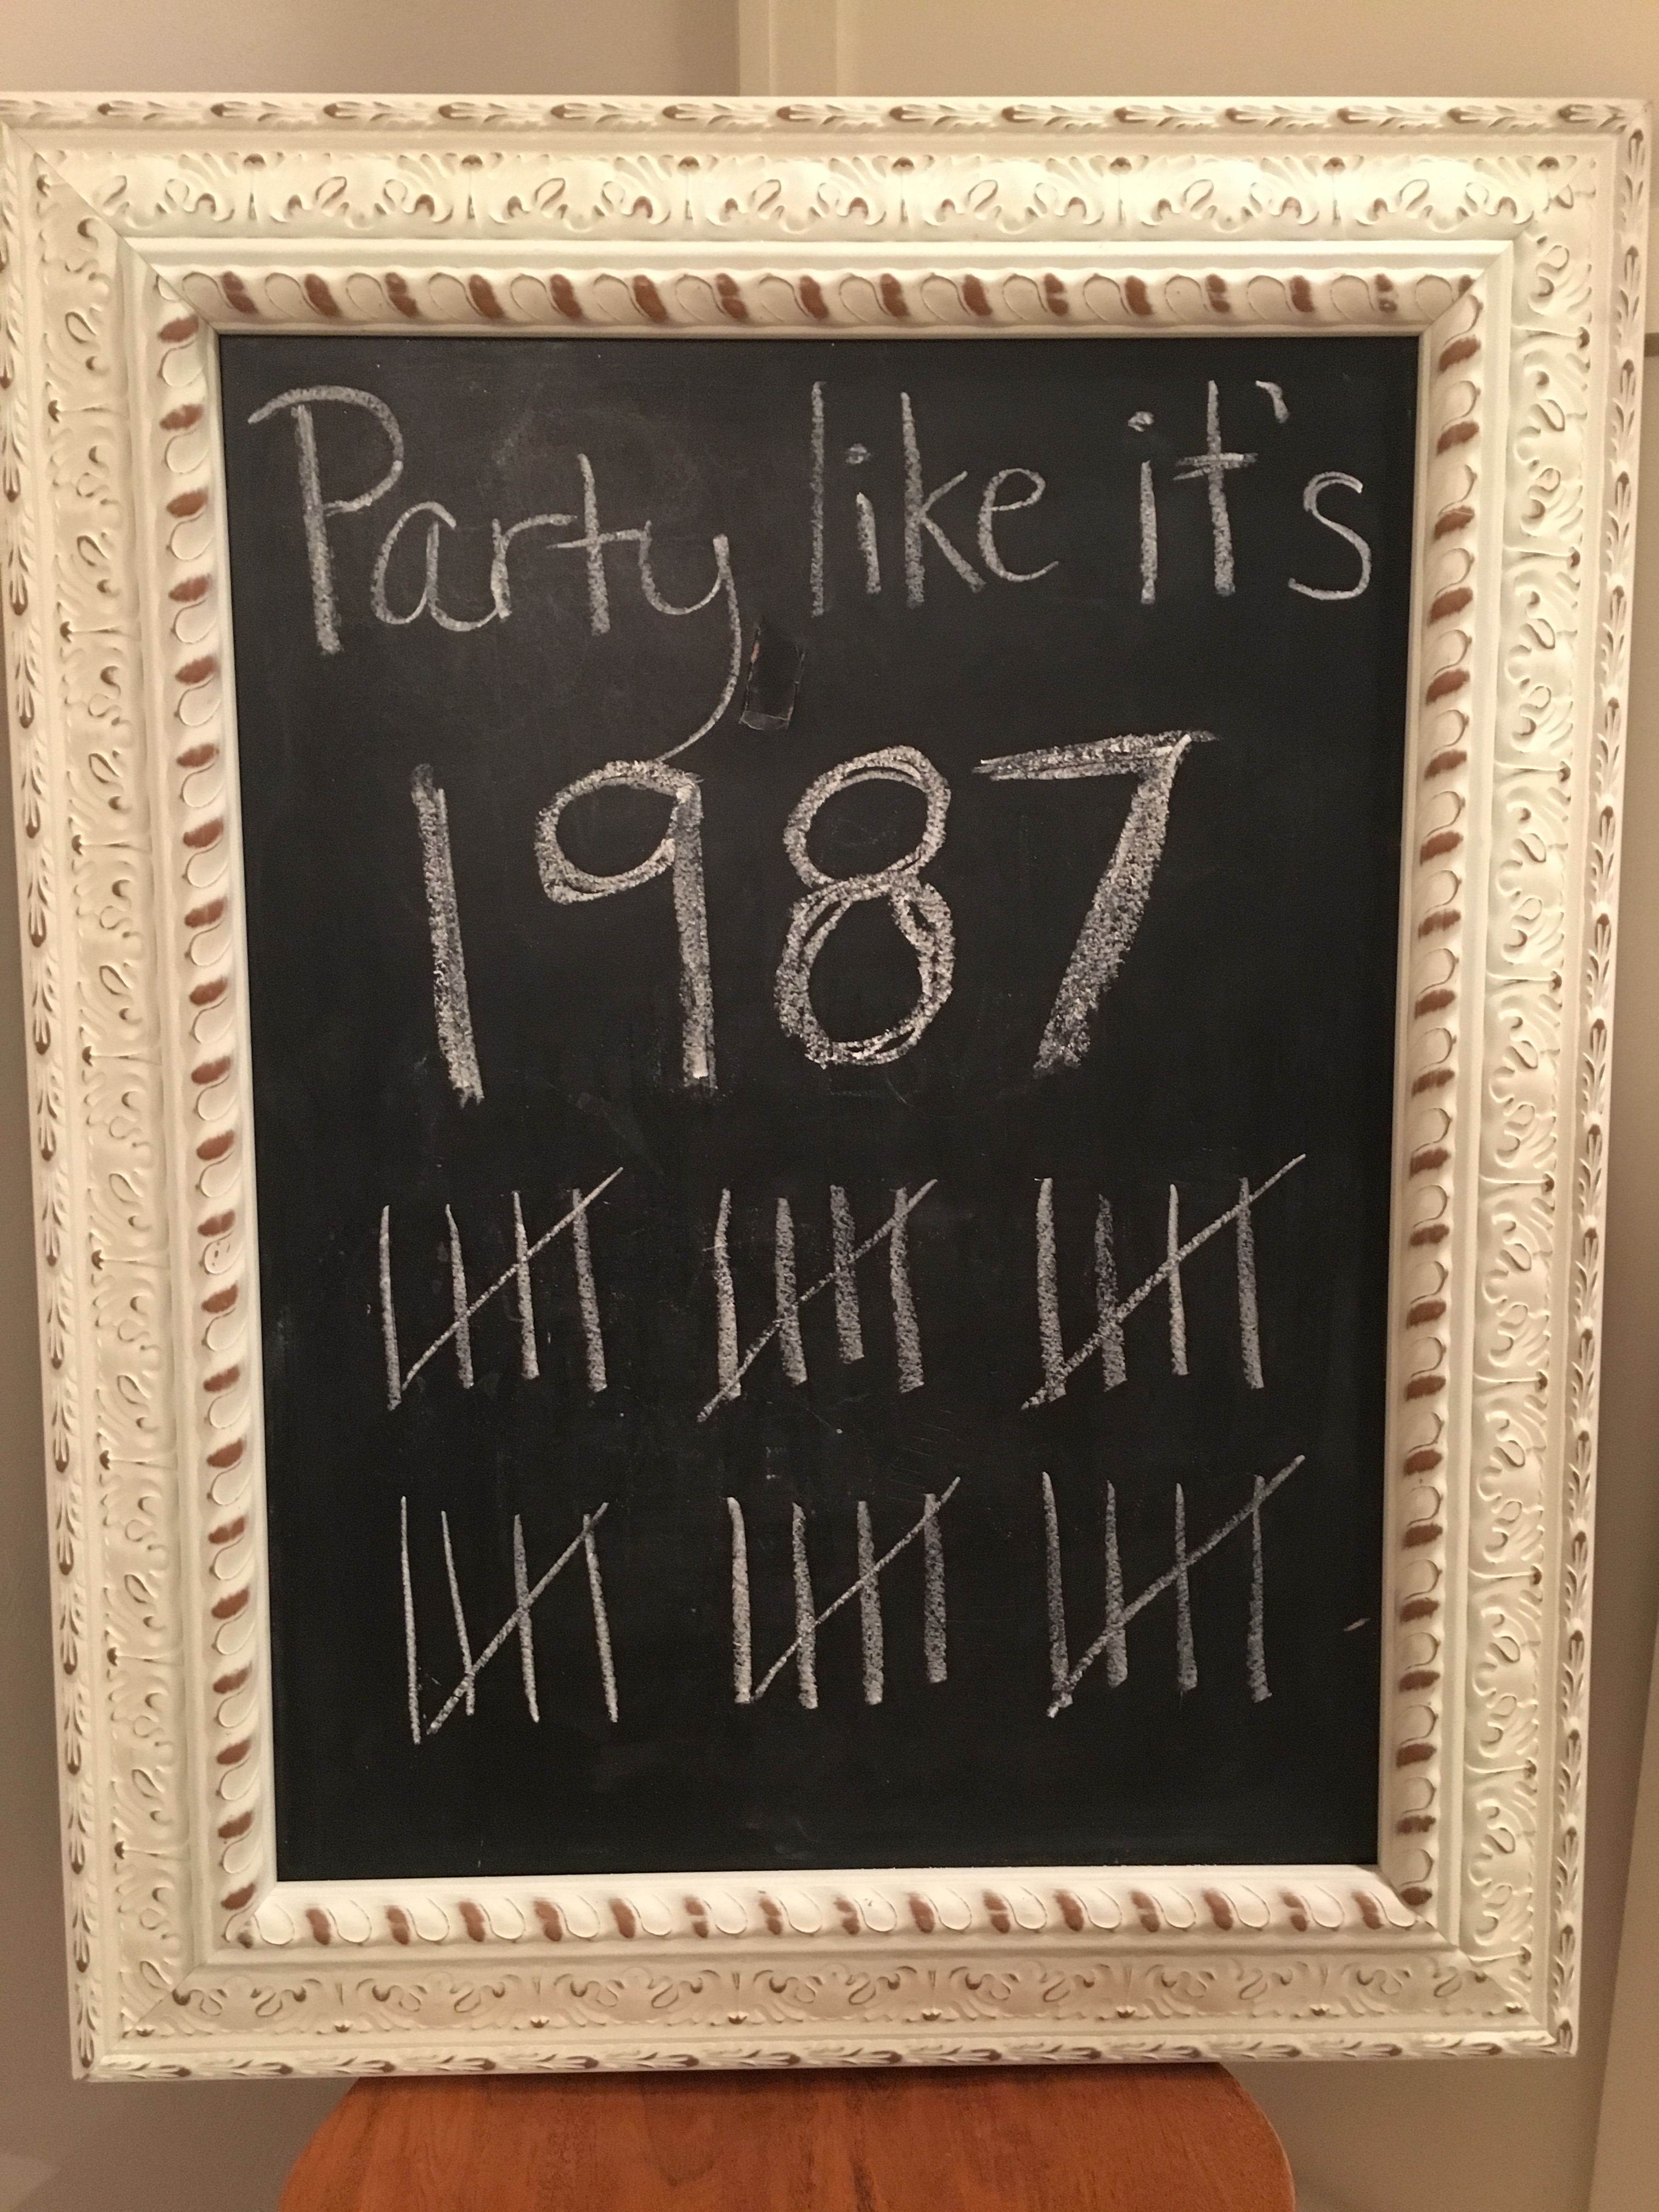 Party like it's
1987